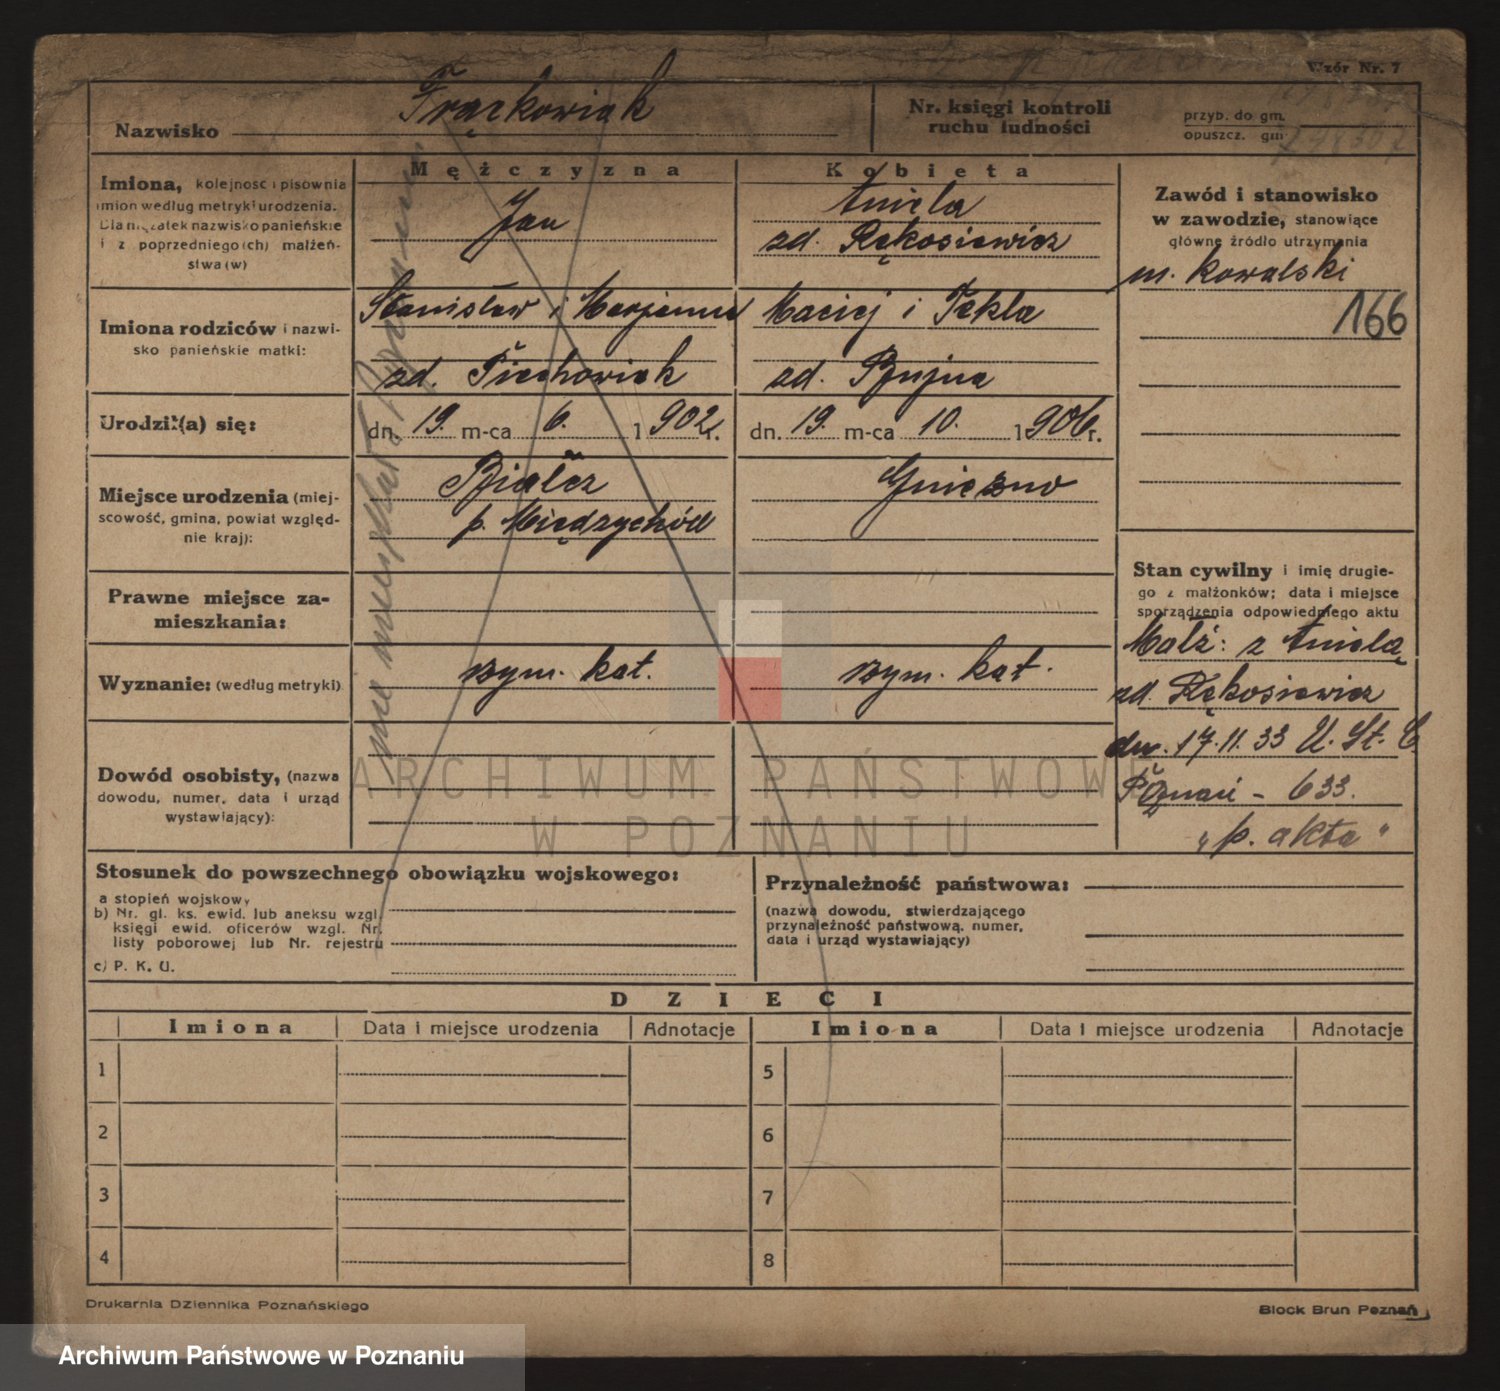 Wzór Nr. 7
Nazwisko Frąckowiak
Nr. księgi kontroli
ruchu ludności
przyb. do gm.
opuszcz. gm.
Mężczyzna
Kobieta
Imiona, kolejność i pisownia
imion według metryki urodzenia.
Dla mężatek nazwisko panieńskie
i z poprzedniego (ch) małżeń-
stwa (w)
Jan
Aniela
zd. Rękosiewicz
Zawód i stanowisko
w zawodzie, stanowiące
główne źródło utrzymania
m. kowalski
166
Imiona rodziców i nazwi-
sko panieńskie matki:
Stanisław i Marjanna
zd. Piechowiak
Maciej i Tekla
zd. Bujna
Urodził(a) się:
dn. 19. m-ca 6. 1902 r.
dn. 19. m-ca 10. 1906 r.
Miejsce urodzenia (miej-
scowość, gmina, powiat względ-
nie kraj):
Białcz
p. Międzychód
Gniezno
Prawne miejsce za-
mieszkania:
Stan cywilny i imię drugie-
go z małżonków; data i miejsce
sporządzenia odpowiedniego aktu
Małż: z Anielą
zd. Rękosiewicz
dn. 17.11.33 U. St. C.
Poznań - 633.
"p. akta"
Wyznanie: (według metryki)
rzym. kat.
rzym. kat.
Dowód osobisty, (nazwa
dowodu, numer, data i urząd
wystawiający):
nie mieszkał
ARCHIWUM PAŃSTWOWE
W POZNANIU
Stosunek do powszechnego obowiązku wojskowego:
a stopień wojskowy
b) Nr. gl. ks. ewid. lub aneksu wzgl.
księgi ewid. oficerów wzgl. Nr.
listy poborowej lub Nr. rejestru
c) P. K. U.
Przynależność państwowa:
(nazwa dowodu, stwierdzającego
przynależność państwową, numer,
data i urząd wystawiający)
DZIECI
Imiona Data i miejsce urodzenia Adnotacje Imiona Data i miejsce urodzenia Adnotacje
1 5
2 6
3 7
4 8
Drukarnia Dziennika Poznańskiego
Block Brun Poznań
Archiwum Państwowe w Poznaniu